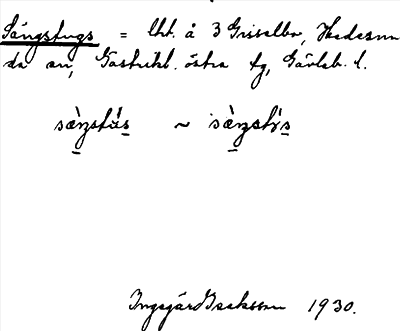 Sängstugs = lht. å 3 Grisselbo, Hedesun
da sn, Gästrikl. östra tg, Gävleb. l.
~
Ingegärd Isaksson 1930.